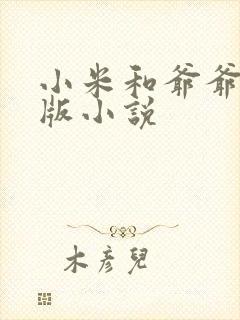 小米和爷爷
版小说
木彦兒